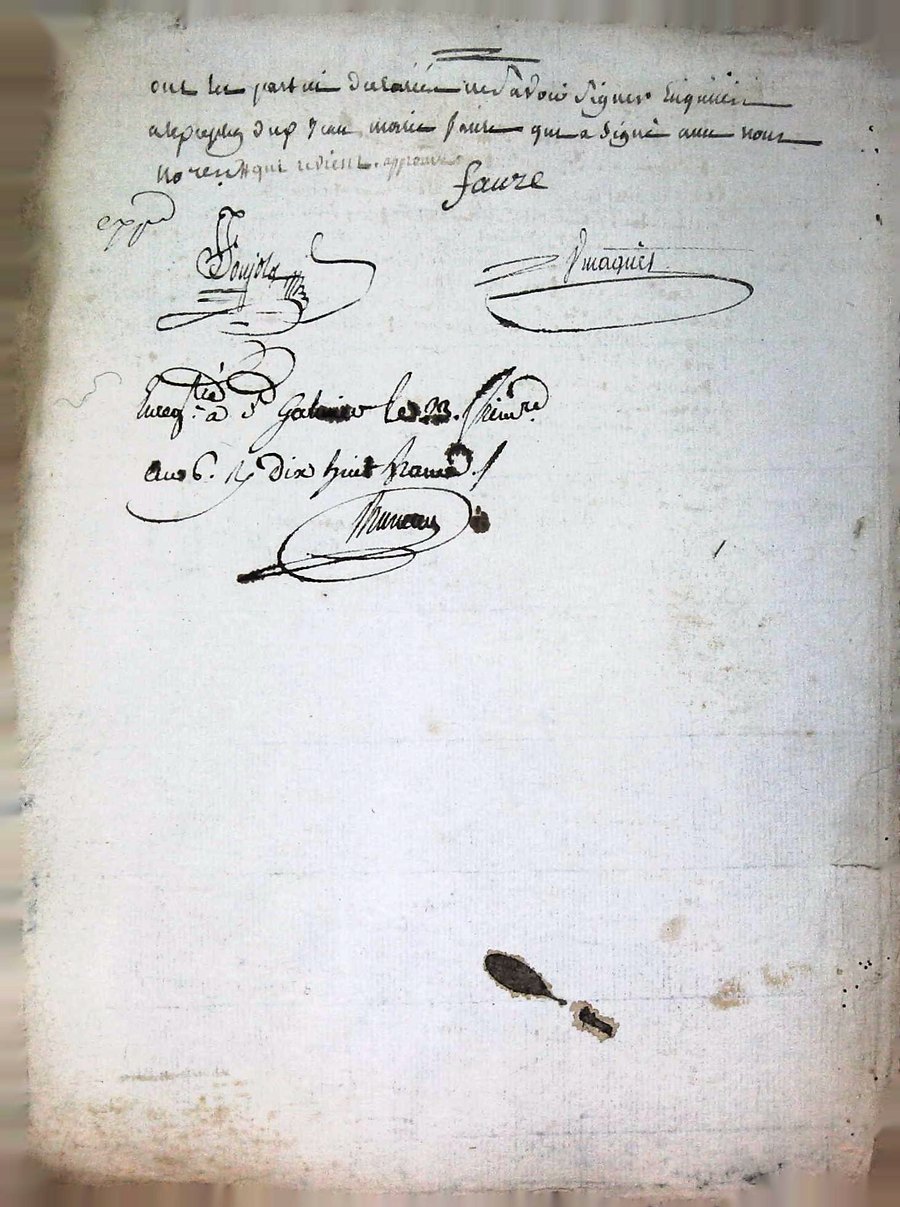 ont les parties declaré ne savoir signer Enquises
excepté dup Jean marie faure qui a signé avec nous
no.res qui retient. approuvé
faure
expé
Boujols
Vmaquès
Enreg.tré a St Galmier le 23. frim.re
an 6. R dix huit francs